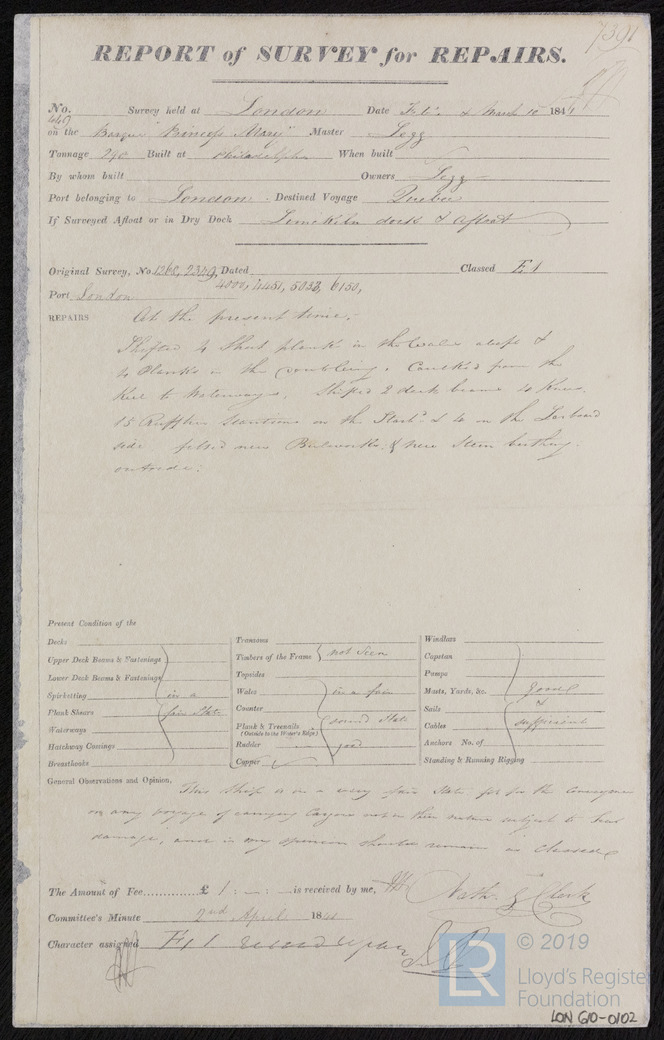 7391
REPORT of SURVEY for REPAIRS.
No. 449 Survey held at London Date Feb. & March 10 1841
on the Barque "Princess Mary" Master Legg
Tonnage 290 Built at Philadelphia When built
By whom built Owners Legg
Port belonging to London Destined Voyage Quebec
If Surveyed Afloat or in Dry Dock Limekiln dock & Afloat
Original Survey, No. 1260, 2359, Dated Classed E 1
4000, 4451, 5033, 6150,
Port London
REPAIRS At the present time.
Shifted 4 Short planks in the Wales abaft &
4 Planks in the doubling. Caulked from the
Keel to Waterways. Shifted 2 deck beams 4 Knees.
15 Rufftree Stantions on the Starbd. & 4 on the Larboard
side fitted new Bulwarks & new Stern
outside.
Present Condition of the
Decks
Upper Deck Beams & Fastenings
Lower Deck Beams & Fastenings
Spirketting in a
Plank Shears fair State
Waterways
Hatchway Comings
Breasthooks
Transoms
Timbers of the Frame not seen
Topsides
Wales in a fair
Counter
Plank & Treenails sound State
(Outside to the Water's Edge)
Rudder good
Copper
Windlass
Capstan
Pumps
Masts, Yards, &c. good
Sails &
Cables sufficient
Anchors No. of
Standing & Running Rigging
General Observations and Opinion, This Ship is in a very fair State fit for the Conveyance
on any voyage of carrying Cargoes not in their nature subject to Sea
damage, and in my opinion should remain as Classed
The Amount of Fee............£ 1 : — : — is received by me, Nathl. G Clark
Committee's Minute 2nd April 1841
Character assigned E 1
© 2019
LR
Lloyd's Register
Foundation
LON 610-0102